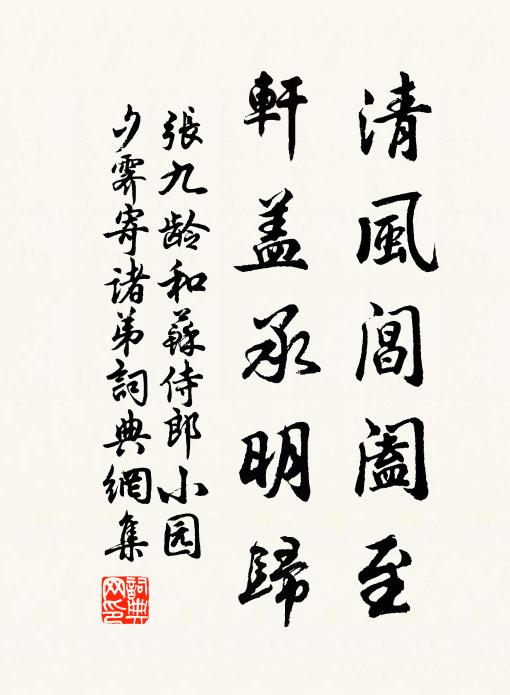 清風閶闔至
軒盖承明歸
張九龄和蘇侍郎小园
夕霽寄諸弟詞典網集
詞典网印